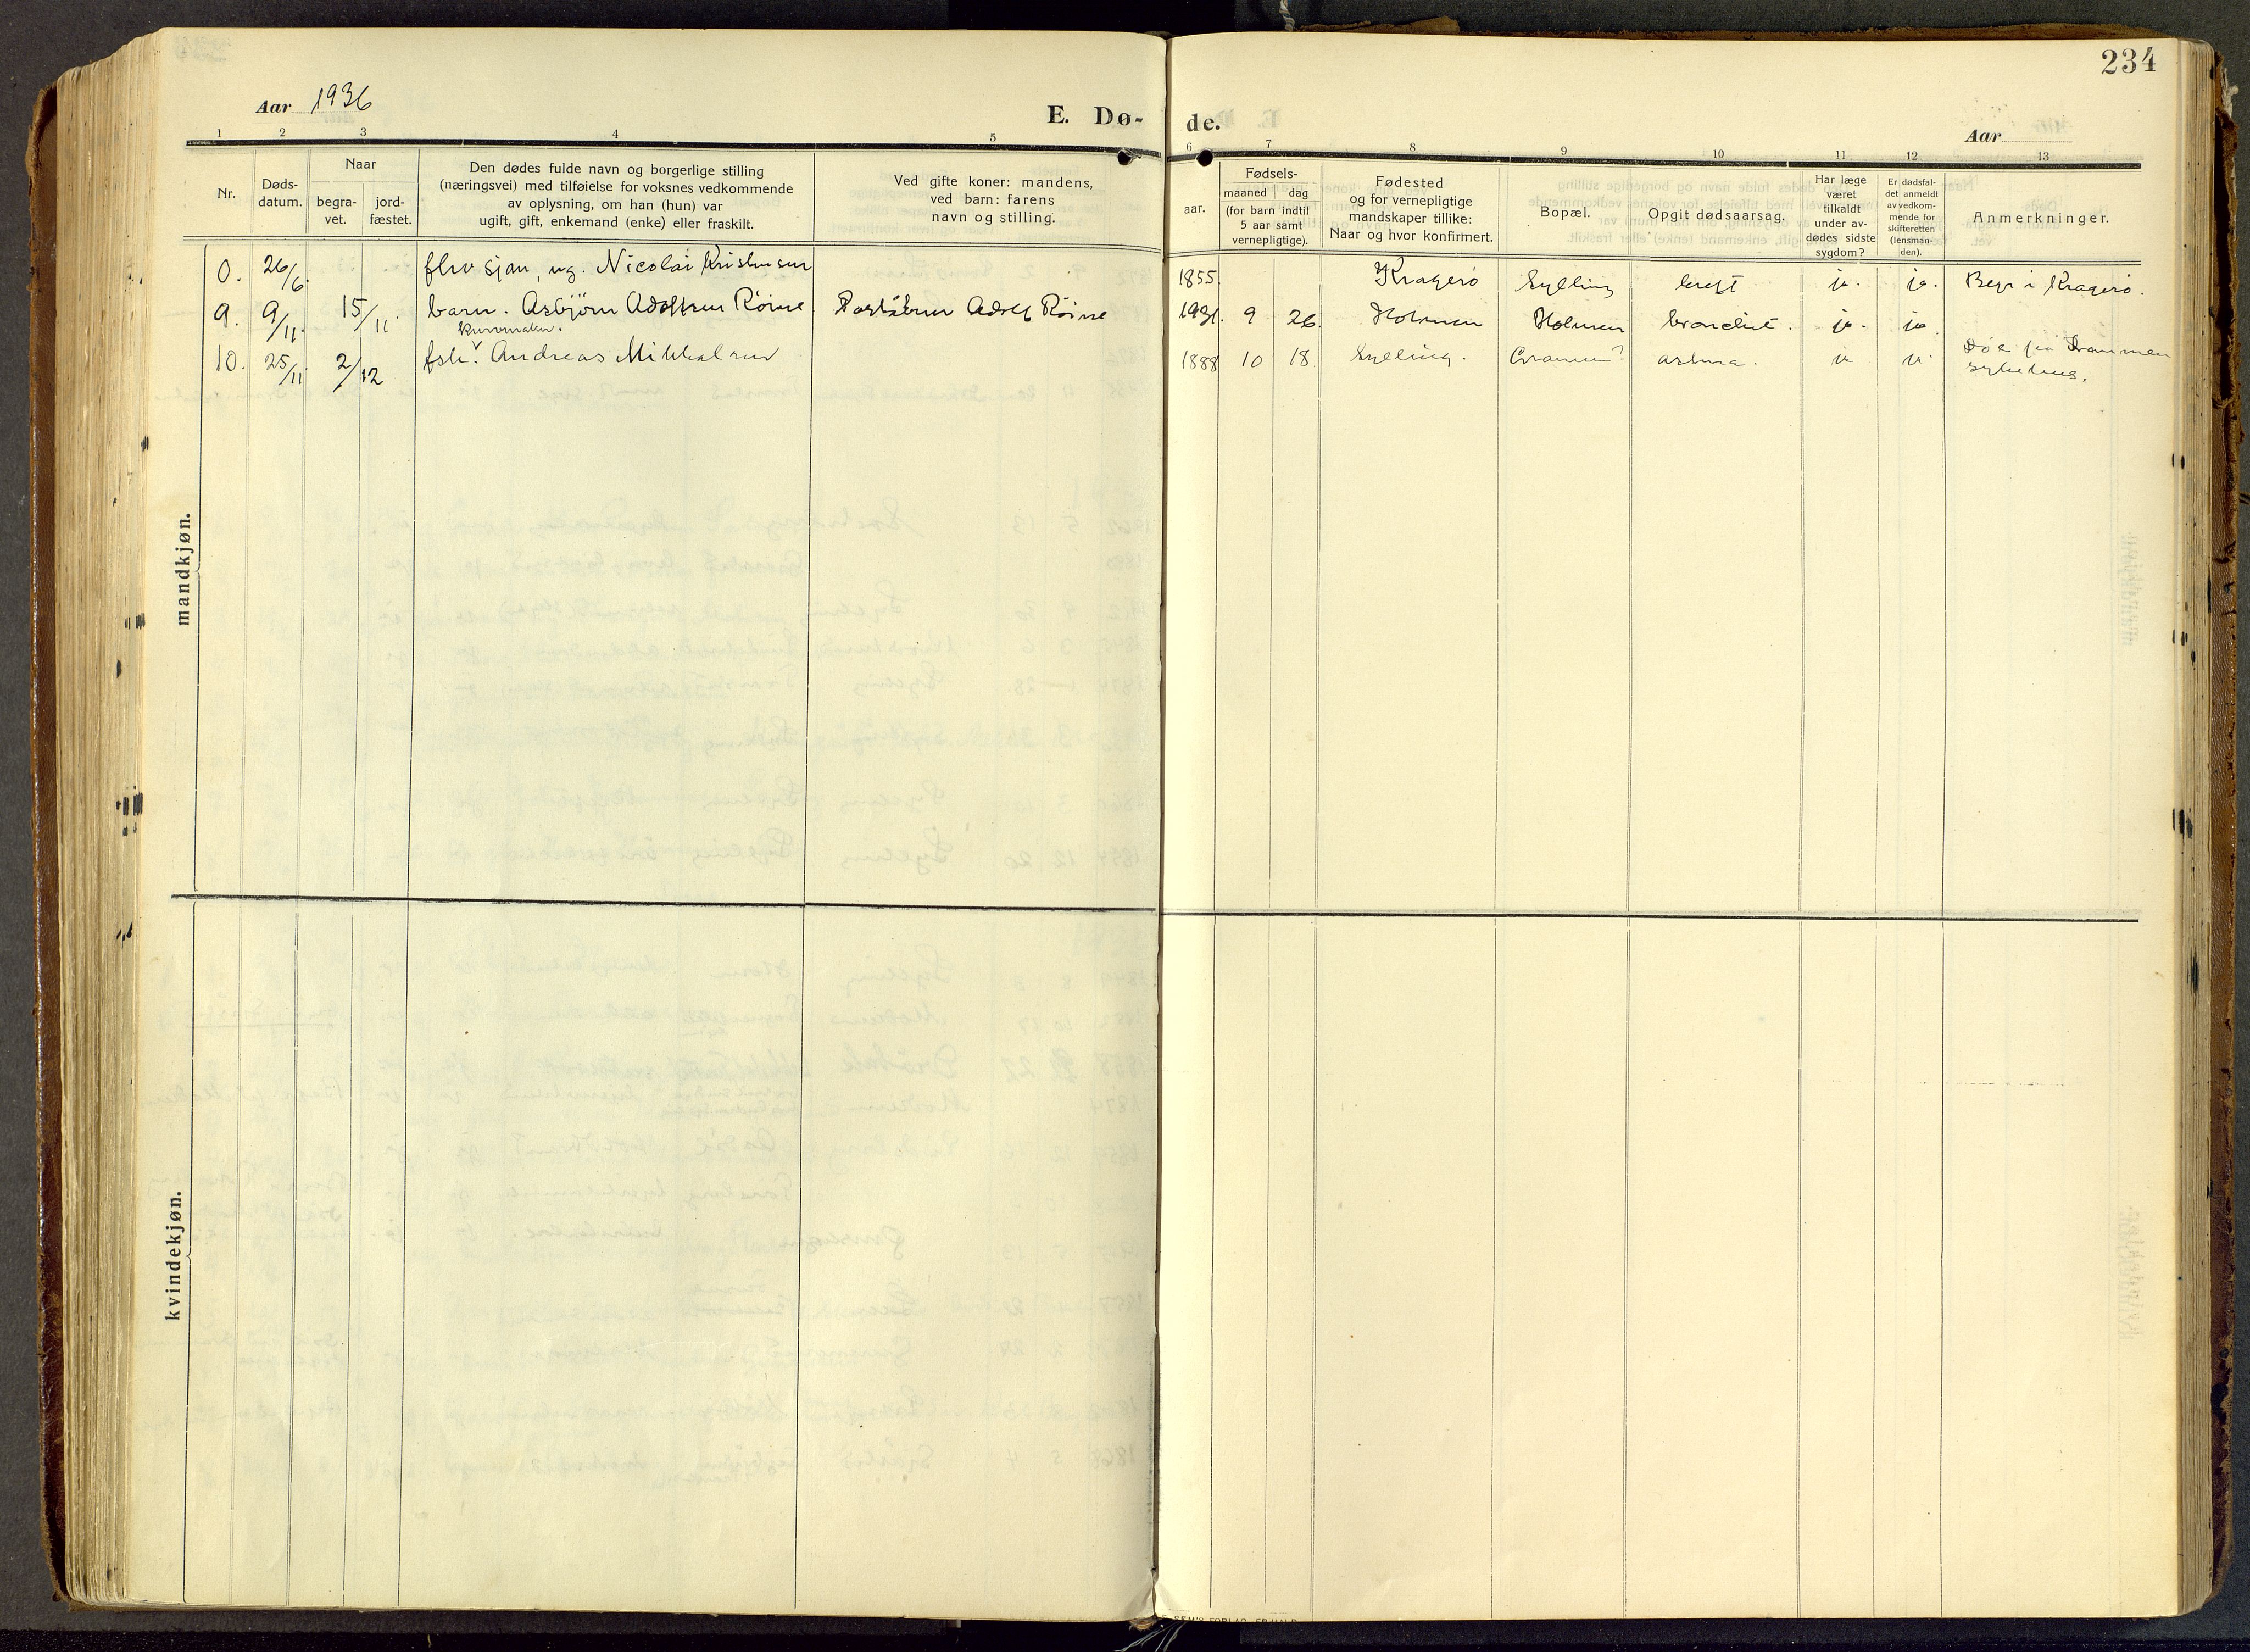 234
Aar 1936
E. Dø-
de.
Aar
1 2 3 4 5 6 7 8 9 10 11 12 13
Nr.
Døds-
datum.
Naar
begra-
vet.
jord-
fæstet.
Den dødes fulde navn og borgerlige stilling
(næringsvei) med tilføielse for voksnes vedkommende
av oplysning, om han (hun) var
ugift, gift, enkemand (enke) eller fraskilt.
Ved gifte koner: mandens,
ved barn: farens
navn og stilling.
aar.
Fødsels-
maaned dag
(for barn indtil
5 aar samt
vernepligtige).
Fødested
og for vernepligtige
mandskaper tillike:
Naar og hvor konfirmert.
Bopæl.
Opgit dødsaarsag.
Har læge
været
tilkaldt
under av-
dødes sidste
sygdom?
Er dødsfal-
det anmeldt
av vedkom-
mende for
skifteretten
(lensman-
den).
Anmerkninger.
mandkjøn.
0. 26/6. ug. Nicolai Kristensen 1855 Kragerø Sylling kreft ja. ja. Begr i Kragerø.
9. 9/11. 15/11. barn. Asbjørn Adolfsen Röine Adolf Röine 1931. 9 26. Holmen Holmen bronchit. ja. ja.
10. 25/11. 2/12 Andreas Mikkelsen 1888 10 18. Sylling. astma. ja ja Død på Drammen
sykehus.
kvindekjøn.